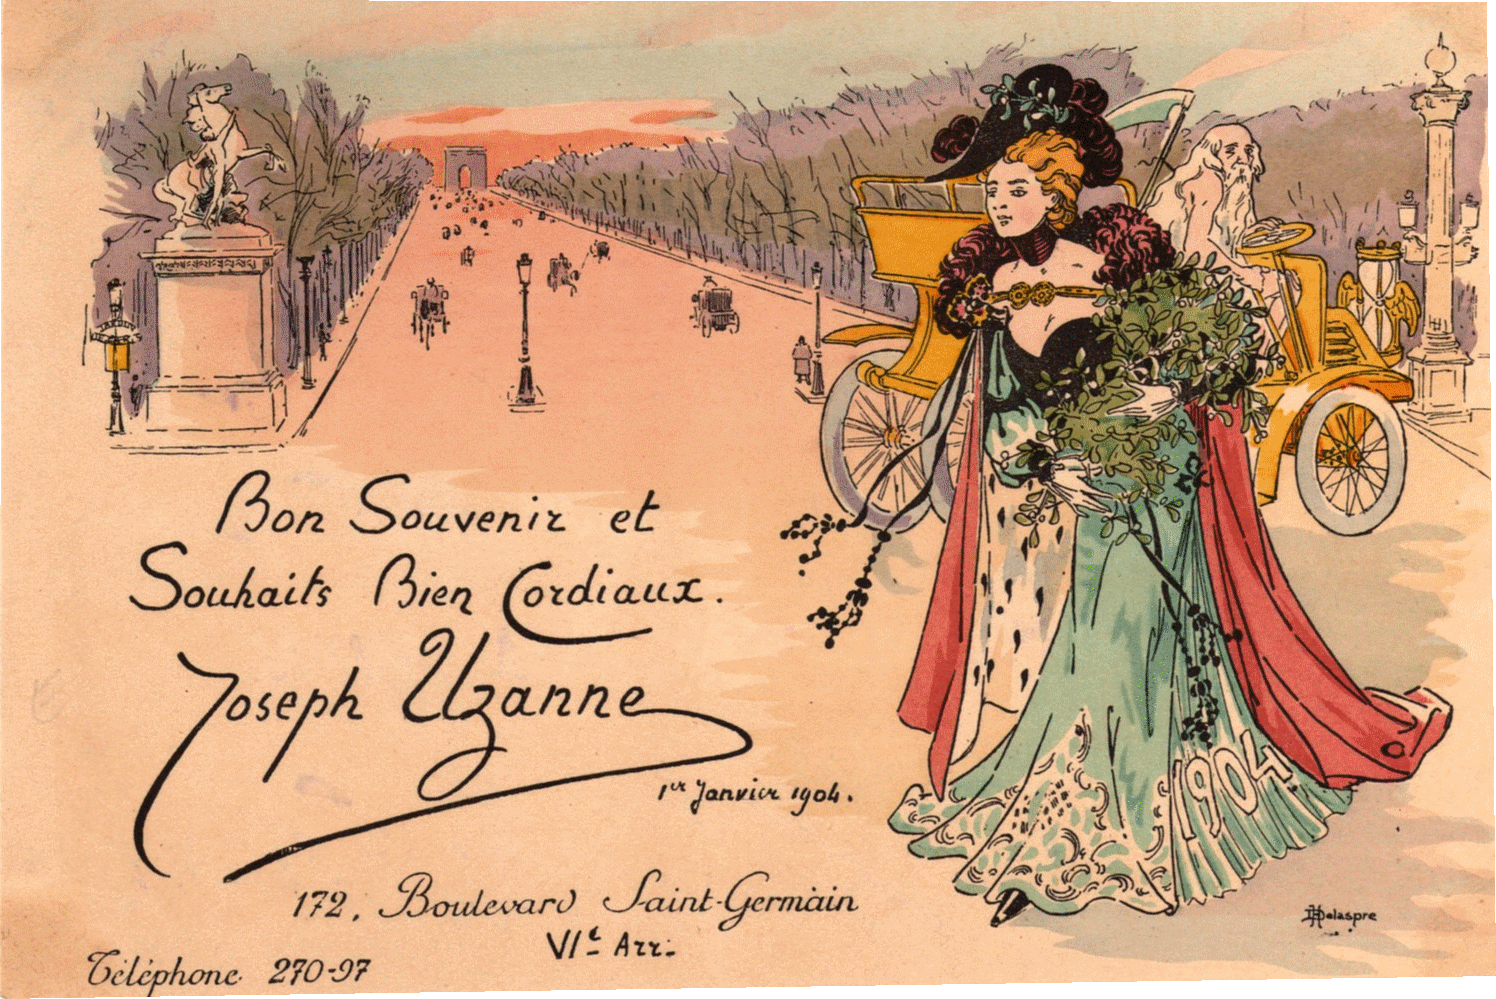 Bon Souvenir et
Souhaits Bien Cordiaux.
Joseph Uzanne
1er Janvier 1904.
172, Boulevard Saint-Germain
VIe Arr:
Téléphone 270-97
1904
HDelaspre